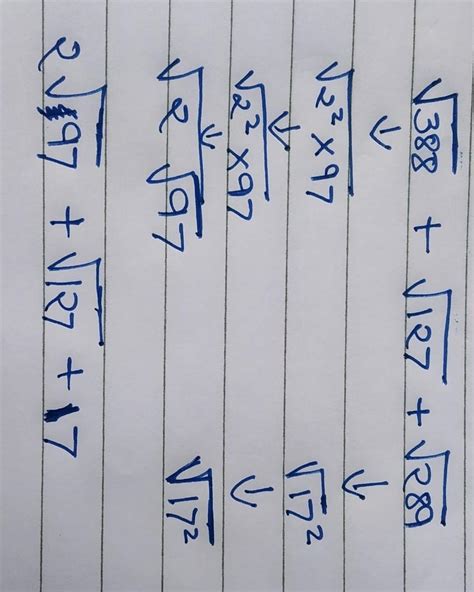 √388 + √127 + √289
↓ ↓
√2² × 97 √17²
↓ ↓
√2² × 97 √17²
↓
√2 √97
2√97 + √127 + 17